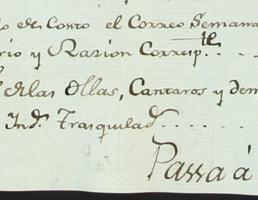 de Costo el Correo Semana
rio y Razion Corresp.te...
delas Ollas, Cantaros y dem
Ind.s Trasquilad.....
Passa á